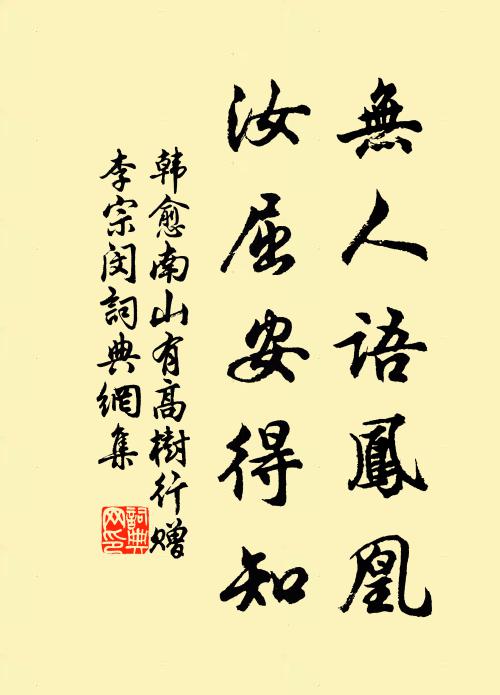 無人語鳳凰
汝屈安得知
韩愈南山有高樹行赠
李宗闵詞典網集
詞典网印